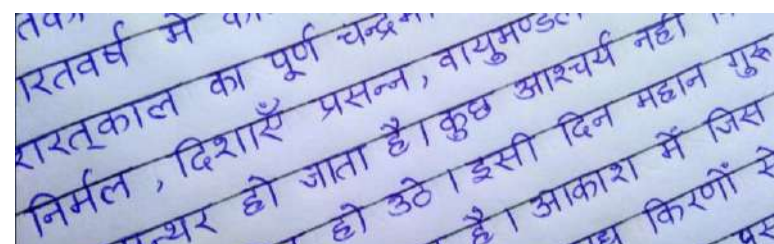 रतवर्ष में
शरत्काल का पूर्ण चन्द्रमा
निर्मल, दिशाएँ प्रसन्न, वायुमण्डल
त्थर हो जाता है। कुछ आश्चर्य नहीं
हो उठे। इसी दिन महान गुरु
है। आकाश में जिस
किरणों से